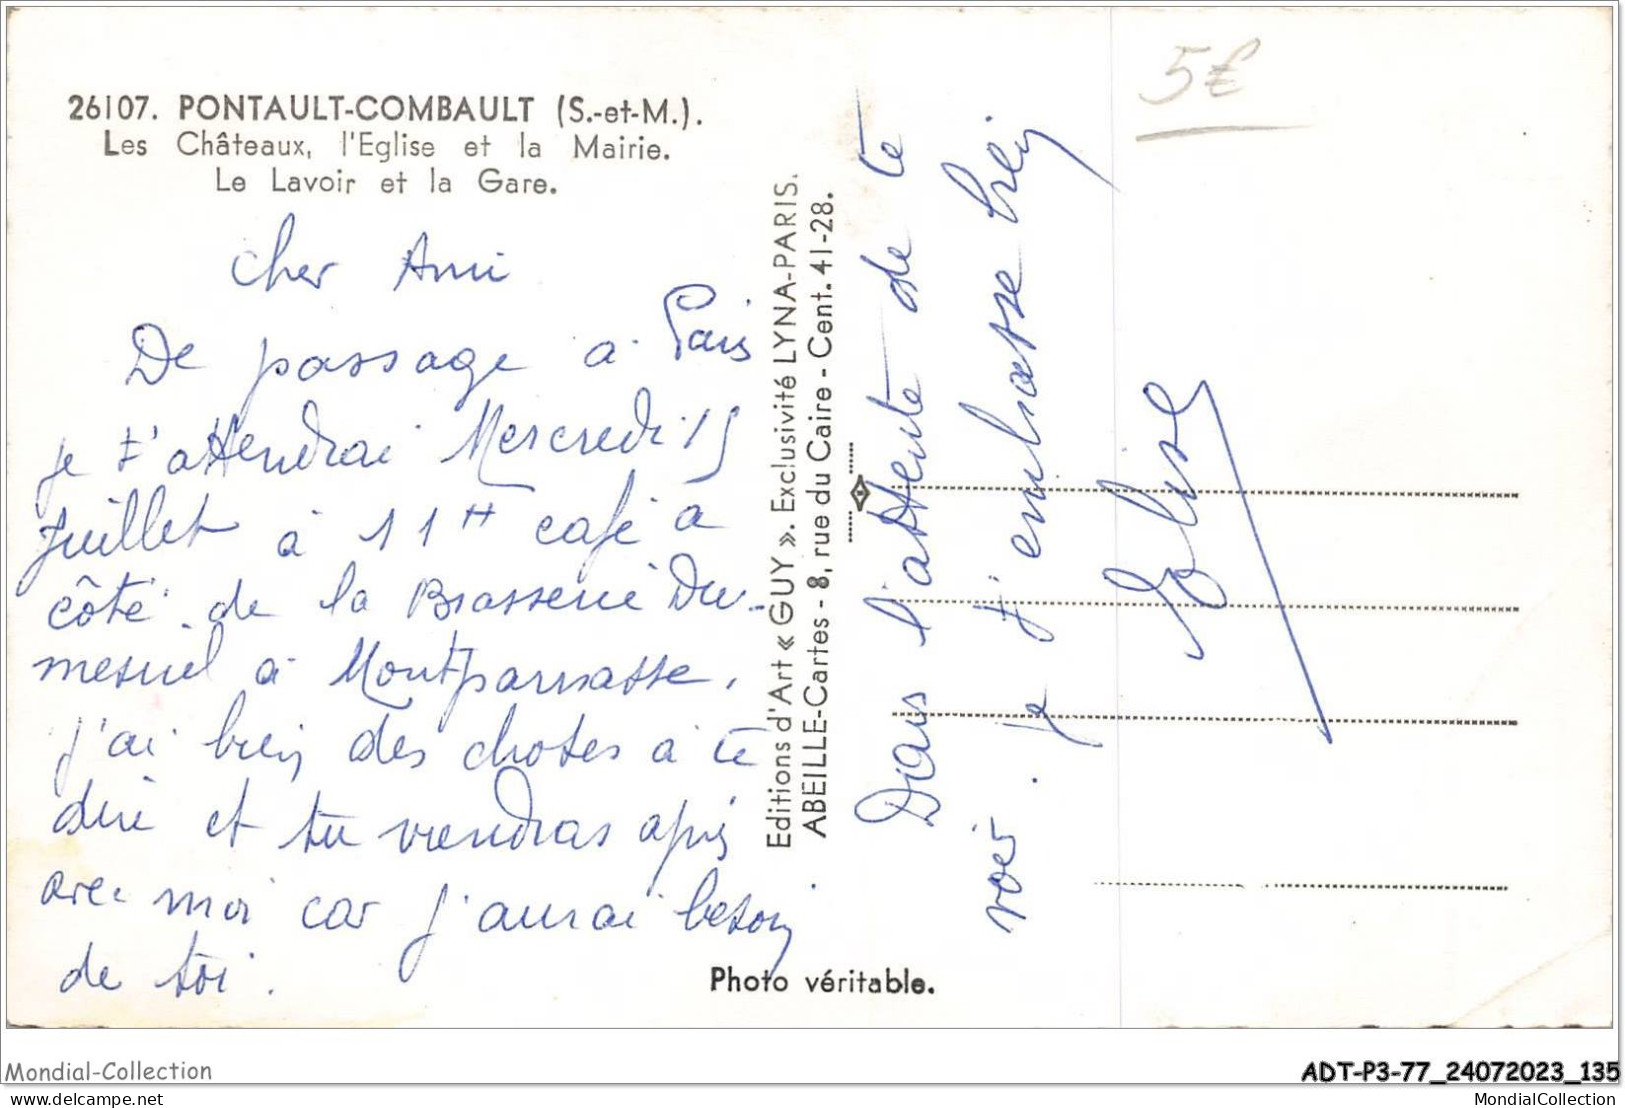 26107. PONTAULT-COMBAULT (S.-et-M.).
Les Châteaux, l'Eglise et la Mairie.
Le Lavoir et la Gare.
Cher Ami
De passage a Paris
je t'attendrai Mercredi 15
Juillet à 11H café a
côté de la Brasserie Du-
mesnil a Montparnasse.
j'ai bien des choses a te
dire et tu viendras après
avec moi car j'aurai besoin
de toi.
Editions d'Art « GUY ». Exclusivité LYNA-PARIS.
ABEILLE-Cartes - 8, rue du Caire - Cent. 41-28.
Photo véritable.
Dans l'attente de te
voir. je t'embrasse bien
Elise
5€
Mondial-Collection
ADT-P3-77_24072023_135
delcampe.net
MondialCollection